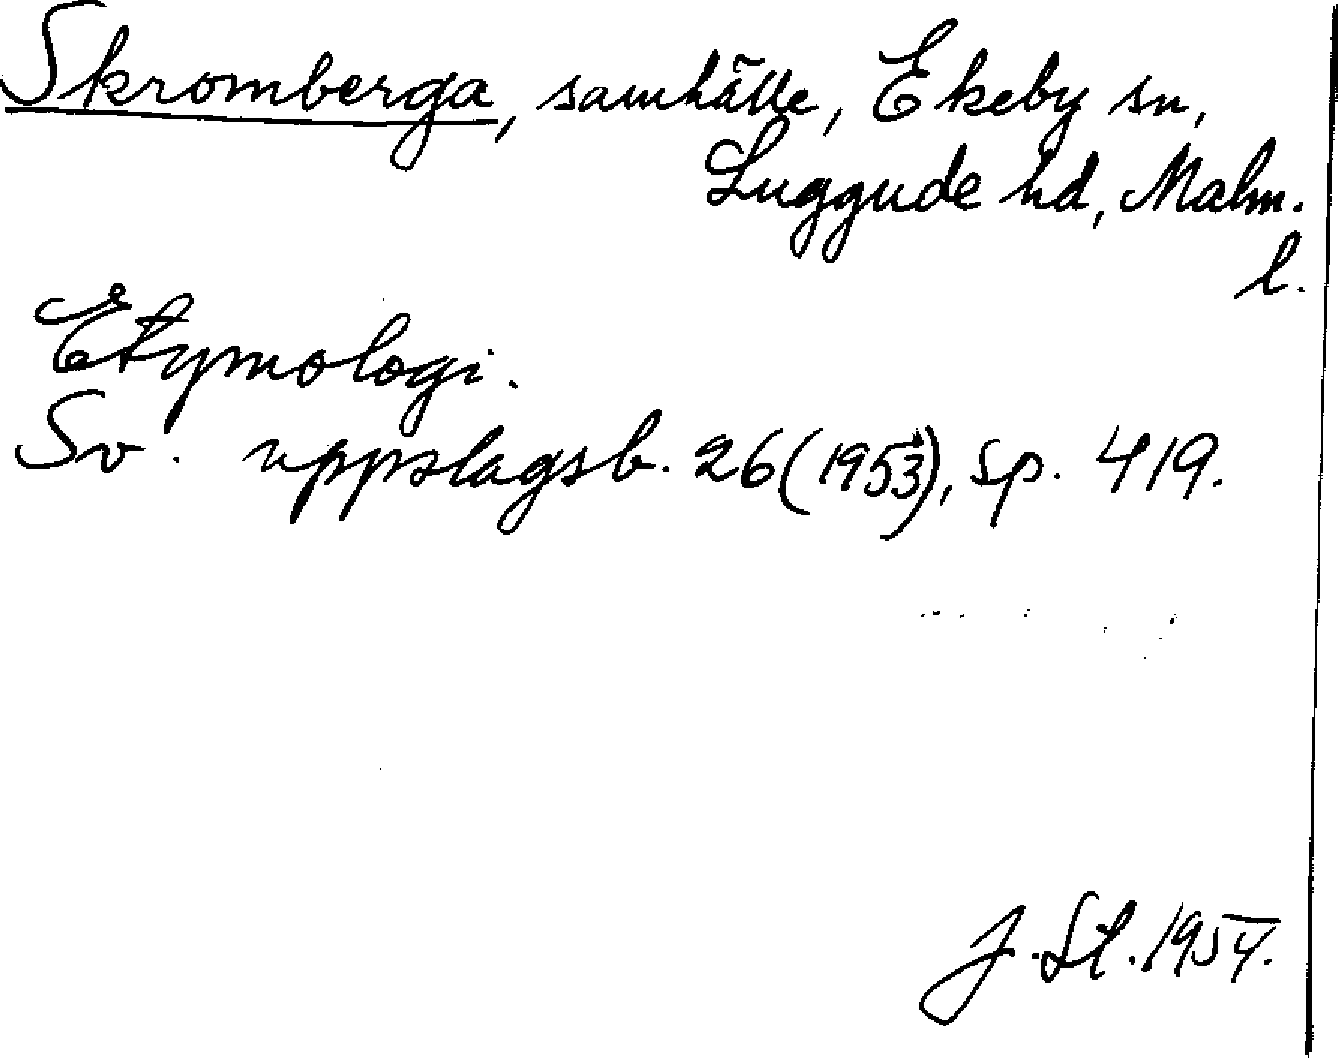 Skromberga, samhälle, Ekeby sn,
Luggude hd, Malm.
l.
Etymologi.
Sv. uppslagsb. 26 (1953), sp. 419.
J. St. 1954.